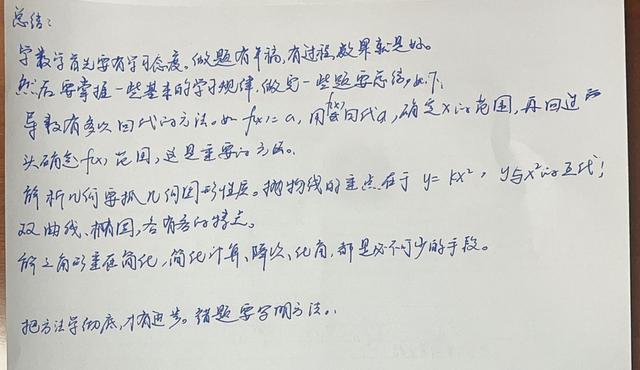 总结：
学数学首先要有学习态度。做题有草稿，有过程，效果就是好。
然后要掌握一些基本的学习规律，做完一些题要总结，如下：
导数有多次回代的方法。如 f(x)=a，用f(x)回代a，确定x的范围，再回过
头确定f(x)范围，这是重要的方法。
解析几何要抓几何图形性质。抛物线的重点在于 y=kx²，y与x²的互代！
双曲线、椭圆，各有各的特点。
解三角形重在简化，简化计算、降次、化角，都是必不可少的手段。
把方法学彻底，才有进步。错题要写明方法。